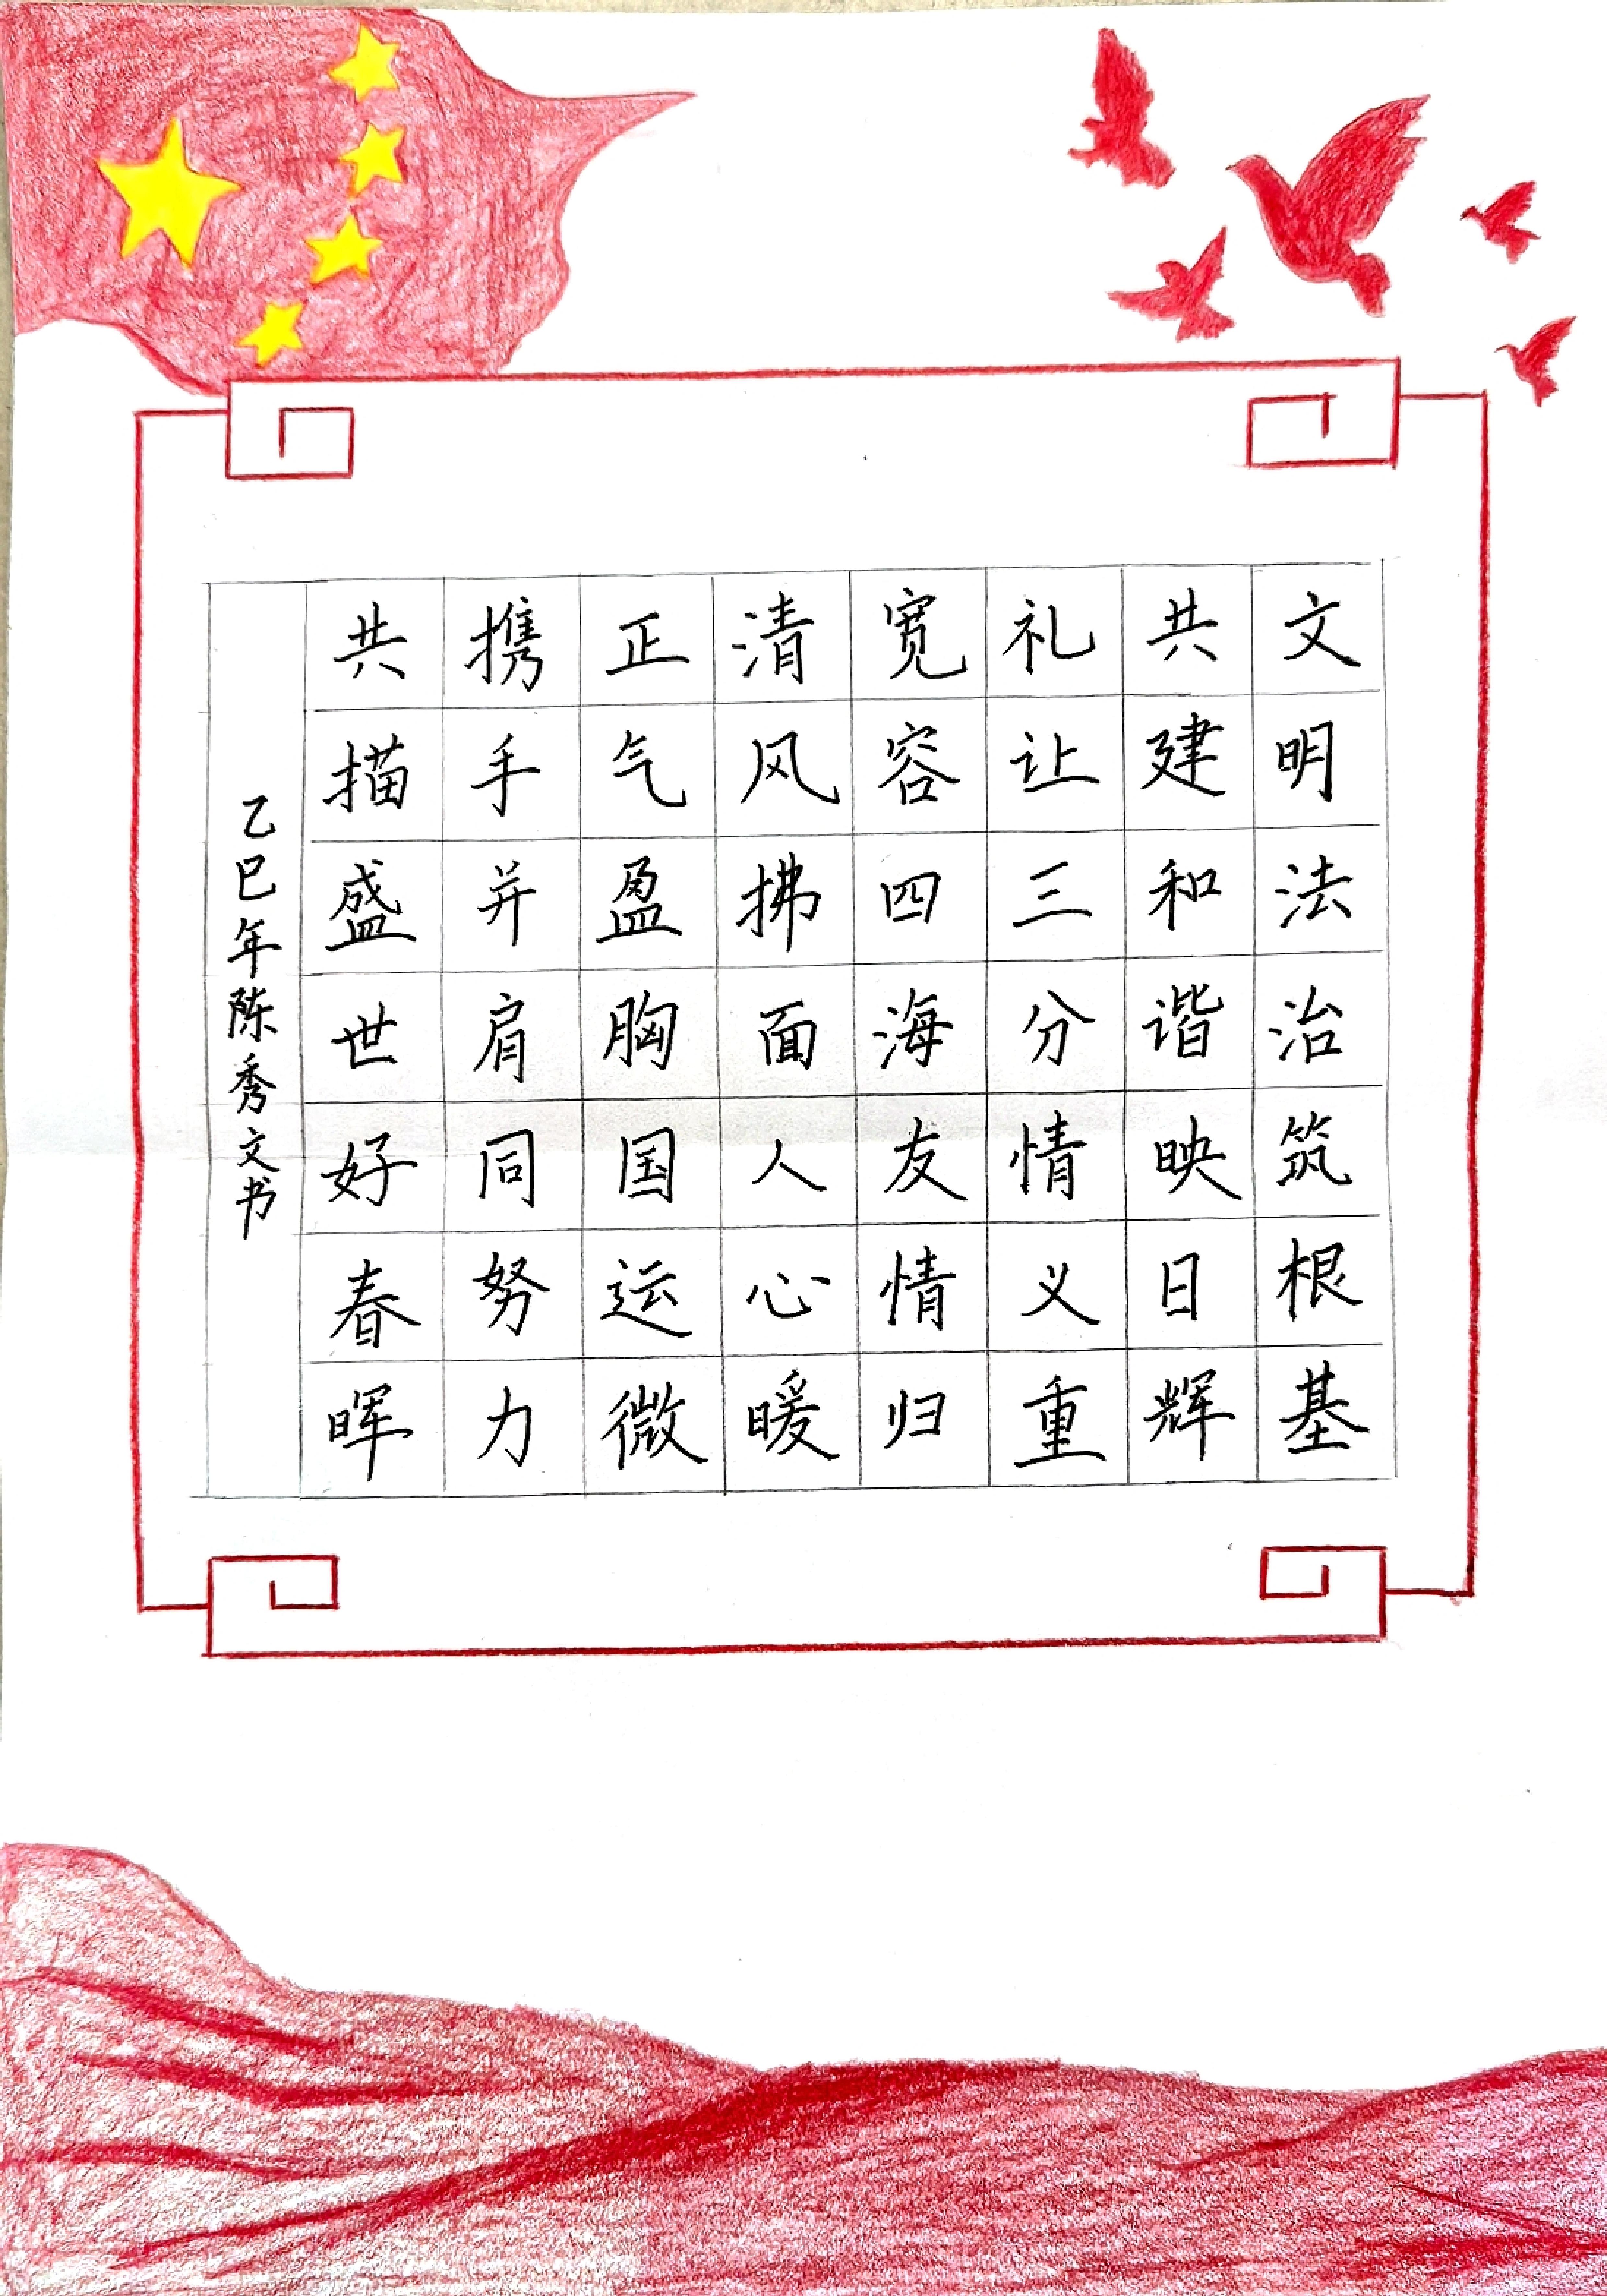 文明法治筑根基
共建和谐映日辉
礼让三分情义重
宽容四海友情归
清风拂面人心暖
正气盈胸国运微
携手并肩同努力
共描盛世好春晖
乙巳年陈秀文书